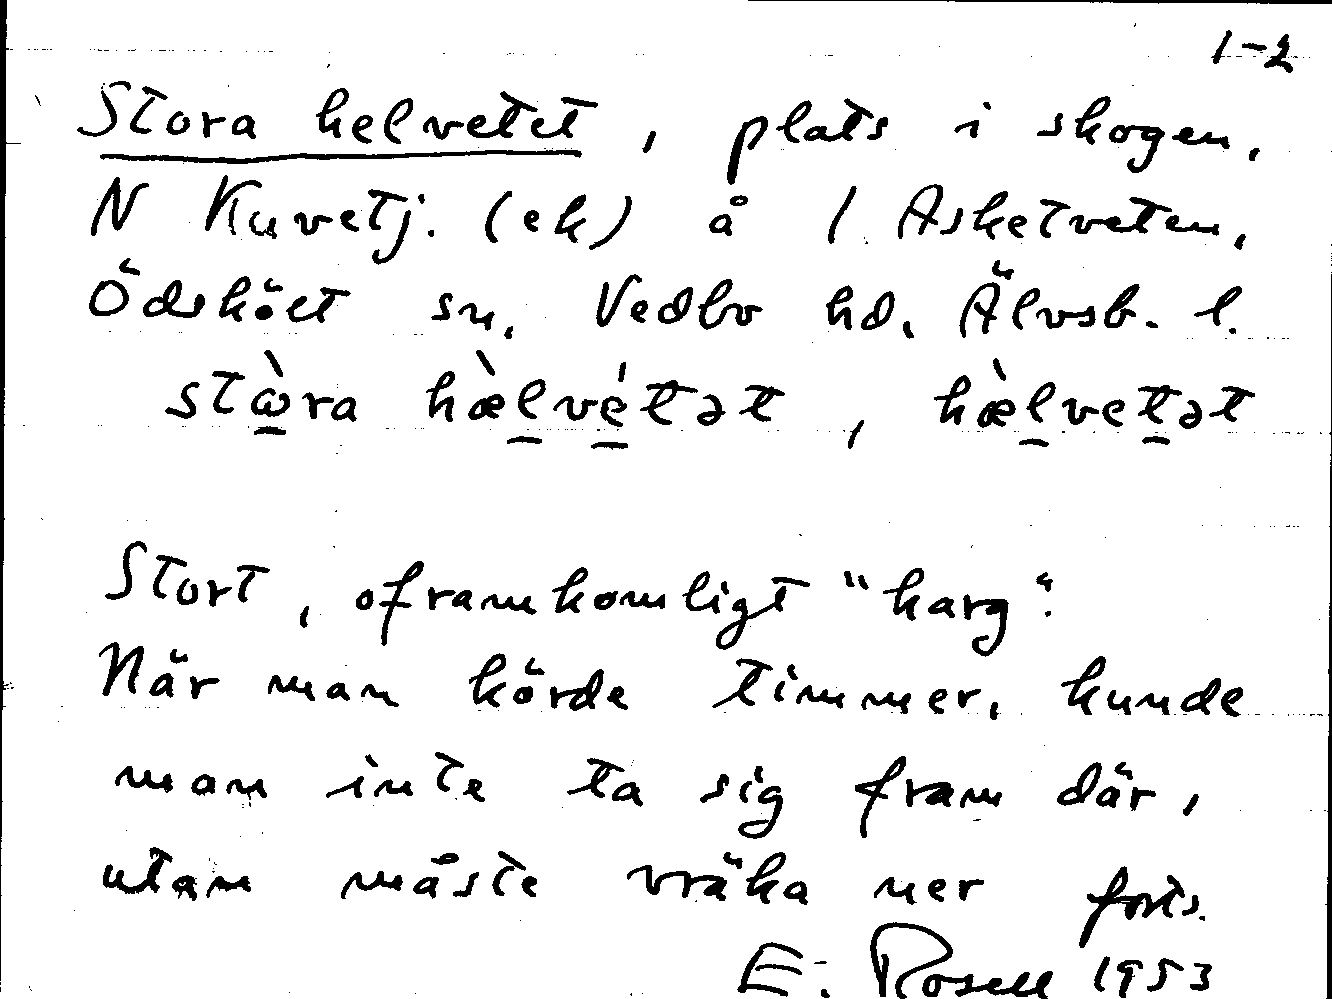 1-2
Stora helvetet, plats i skogen,
N Kuvetj. (ek) å 1 Asketveten,
Ödskölt sn, Vedbo hd, Älvsb. l.
stὼra hæ̀lvétət, hæ̀lvetət
Stort, oframkomligt "harg".
När man körde timmer, kunde
man inte ta sig fram där,
utan måste vräka ner forts.
E. Rosell 1953